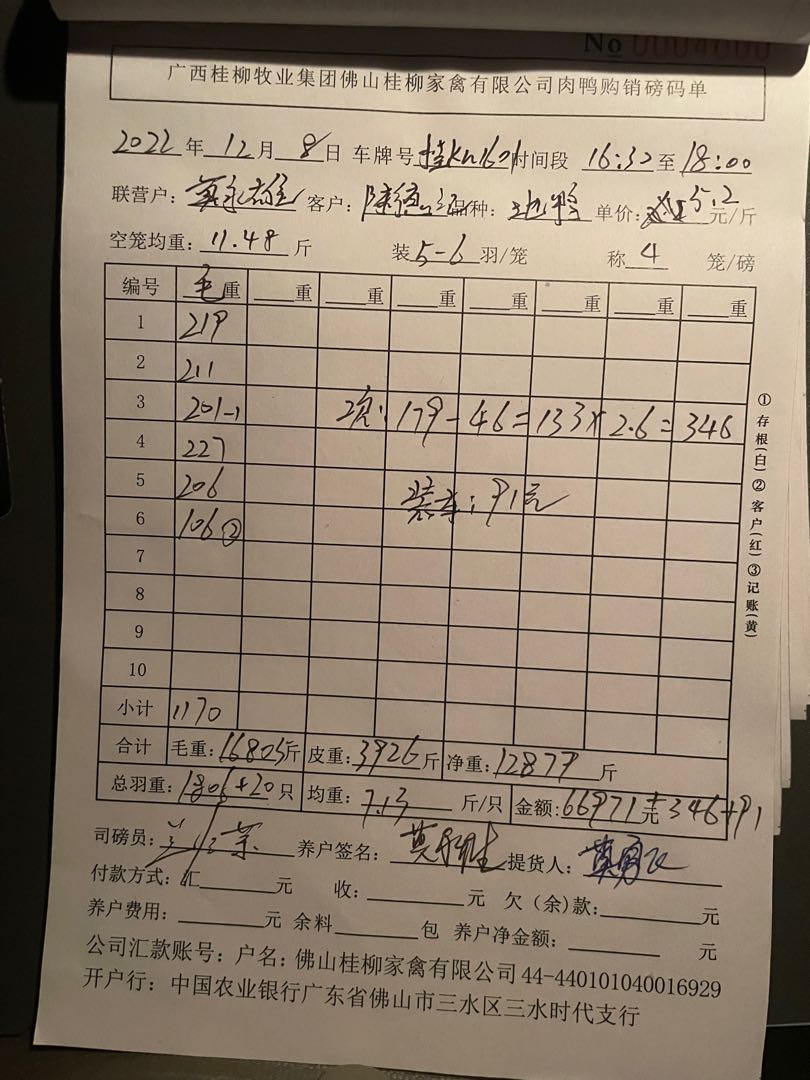 No 0004000
广西桂柳牧业集团佛山桂柳家禽有限公司肉鸭购销磅码单
2022年12月8日 车牌号 时间段 16:32至18:00
联营户: 客户: 品种: 单价: 5.2元/斤
空笼均重: 11.48 斤 装5-6羽/笼 称 4 笼/磅
编号 毛重 重 重 重 重 重 重 重
1 219
2 211
3 201-1 次: 179-46=133×2.6=346
4 227
5 206 装车: 91元
6 106②
7
8
9
10
小计 1170
合计 毛重: 16805斤 皮重: 3926斤 净重: 12879 斤
总羽重: 1806+20只 均重: 7.13 斤/只 金额: 66971元+346+91
司磅员: 养户签名: 提货人:
付款方式: 汇 元 收: 元 欠(余)款: 元
养户费用: 元 余料 包 养户净金额: 元
公司汇款账号: 户名: 佛山桂柳家禽有限公司 44-440101040016929
开户行: 中国农业银行广东省佛山市三水区三水时代支行
①存根(白)②客户(红)③记账(黄)